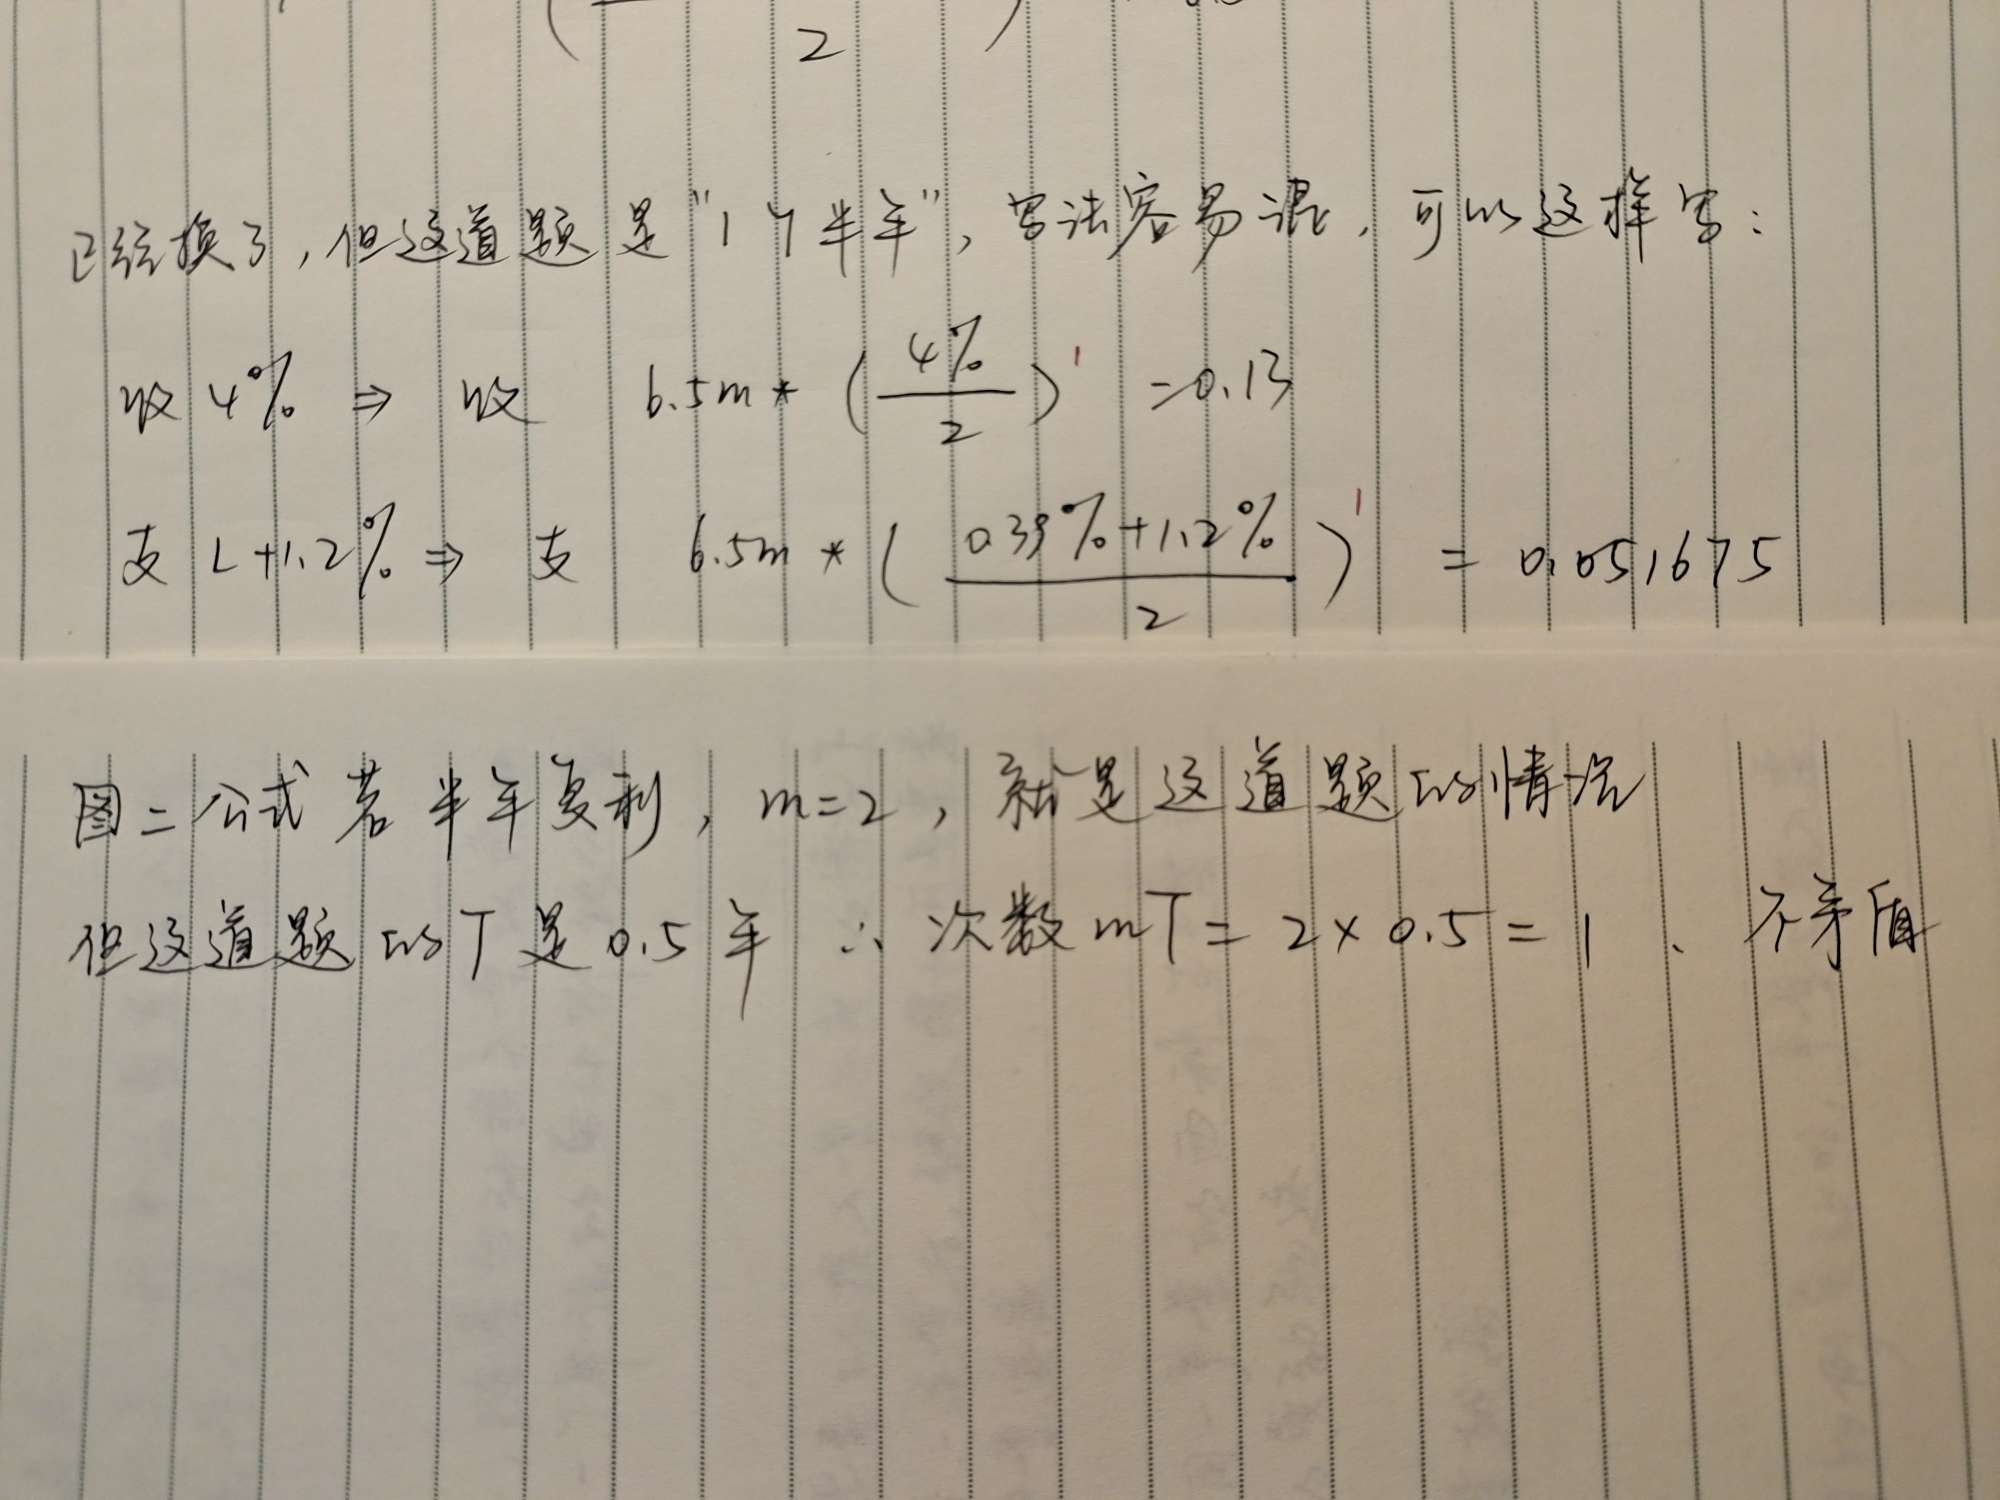 2
已经换了，但这道题是"1个半年"，写法容易混，可以这样写：
收 4% ⇒ 收 6.5m * (4%/2)^1 = 0.13
支 L+1.2% ⇒ 支 6.5m * ((0.39%+1.2%)/2)^1 = 0.051675
图二公式若半年复利，m=2，就是这道题的情况
但这道题的T是0.5年 ∴ 次数mT = 2×0.5 = 1、不矛盾